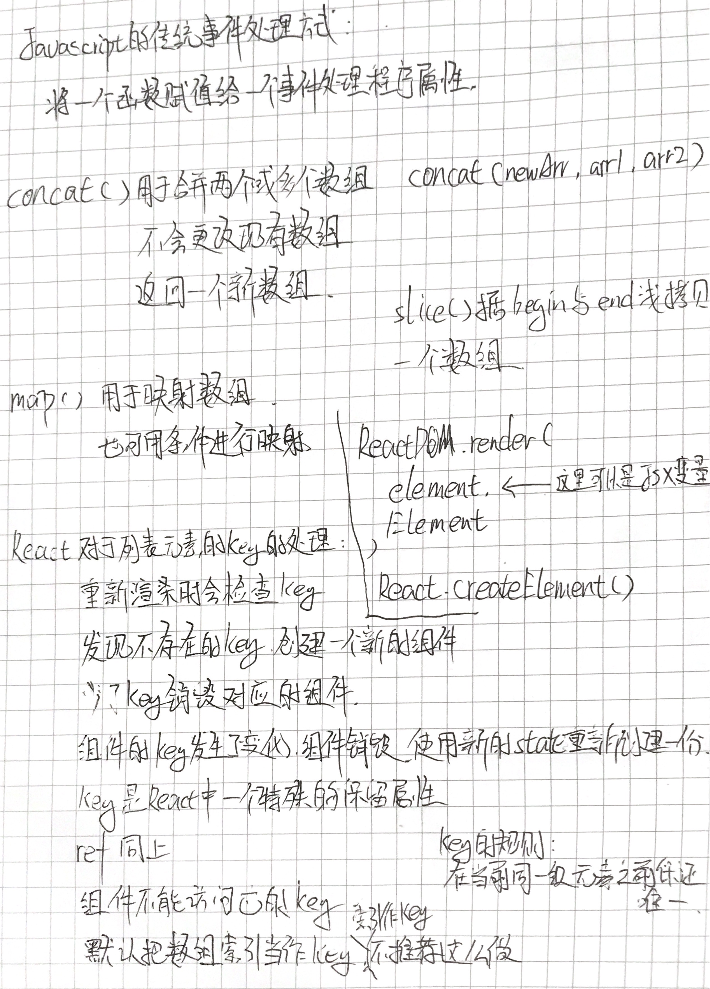 Javascript的传统事件处理方式：
将一个函数赋值给一个事件处理程序属性.
concat()用于合并两个或多个数组 concat(newArr, arr1, arr2)
不会更改现有数组
返回一个新数组.
slice()据begin与end浅拷贝
一个数组
map() 用于映射数组.
也可用条件进行映射
ReactDOM.render(
element, ← 这里可以是JSX变量
Element
)
React.createElement()
React对于列表元素的key的处理：
重新渲染时会检查key
发现不存在的key 创建一个新的组件
少了key销毁对应的组件.
组件的key发生了变化, 组件销毁 使用新的state重新创建一份.
key是React中一个特殊的保留属性
ref 同上
key的规则：
在当前同一级元素之前保证
唯一
组件不能访问它的key
默认把数组索引当作key 索引作key
不推荐这么做